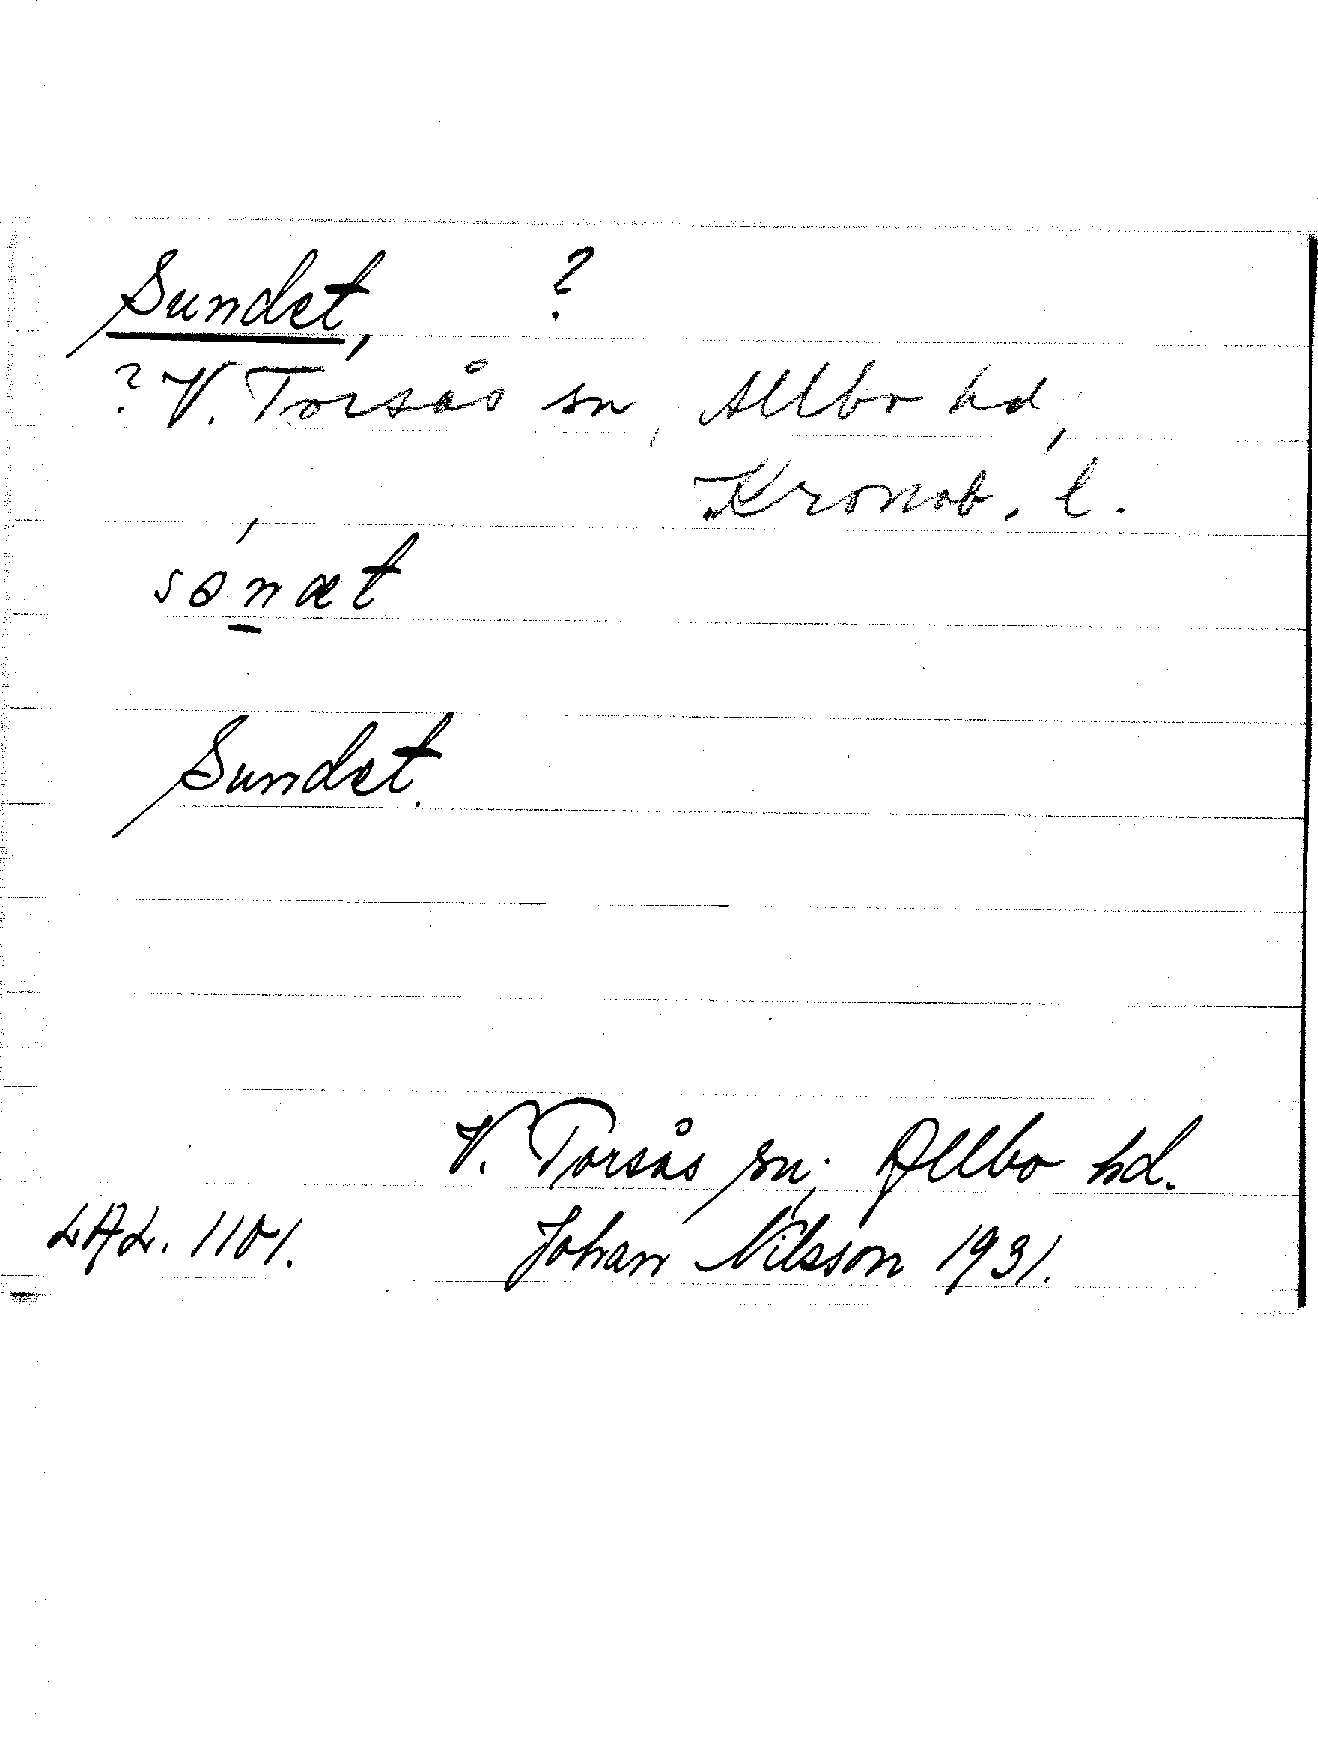 Sundet, ?
? V. Torsås sn, Allbo hd,
Kronob. l.
sønæt
Sundet.
V. Torsås sn; Allbo hd.
LAL. 1101. Johan Nilsson 1931.